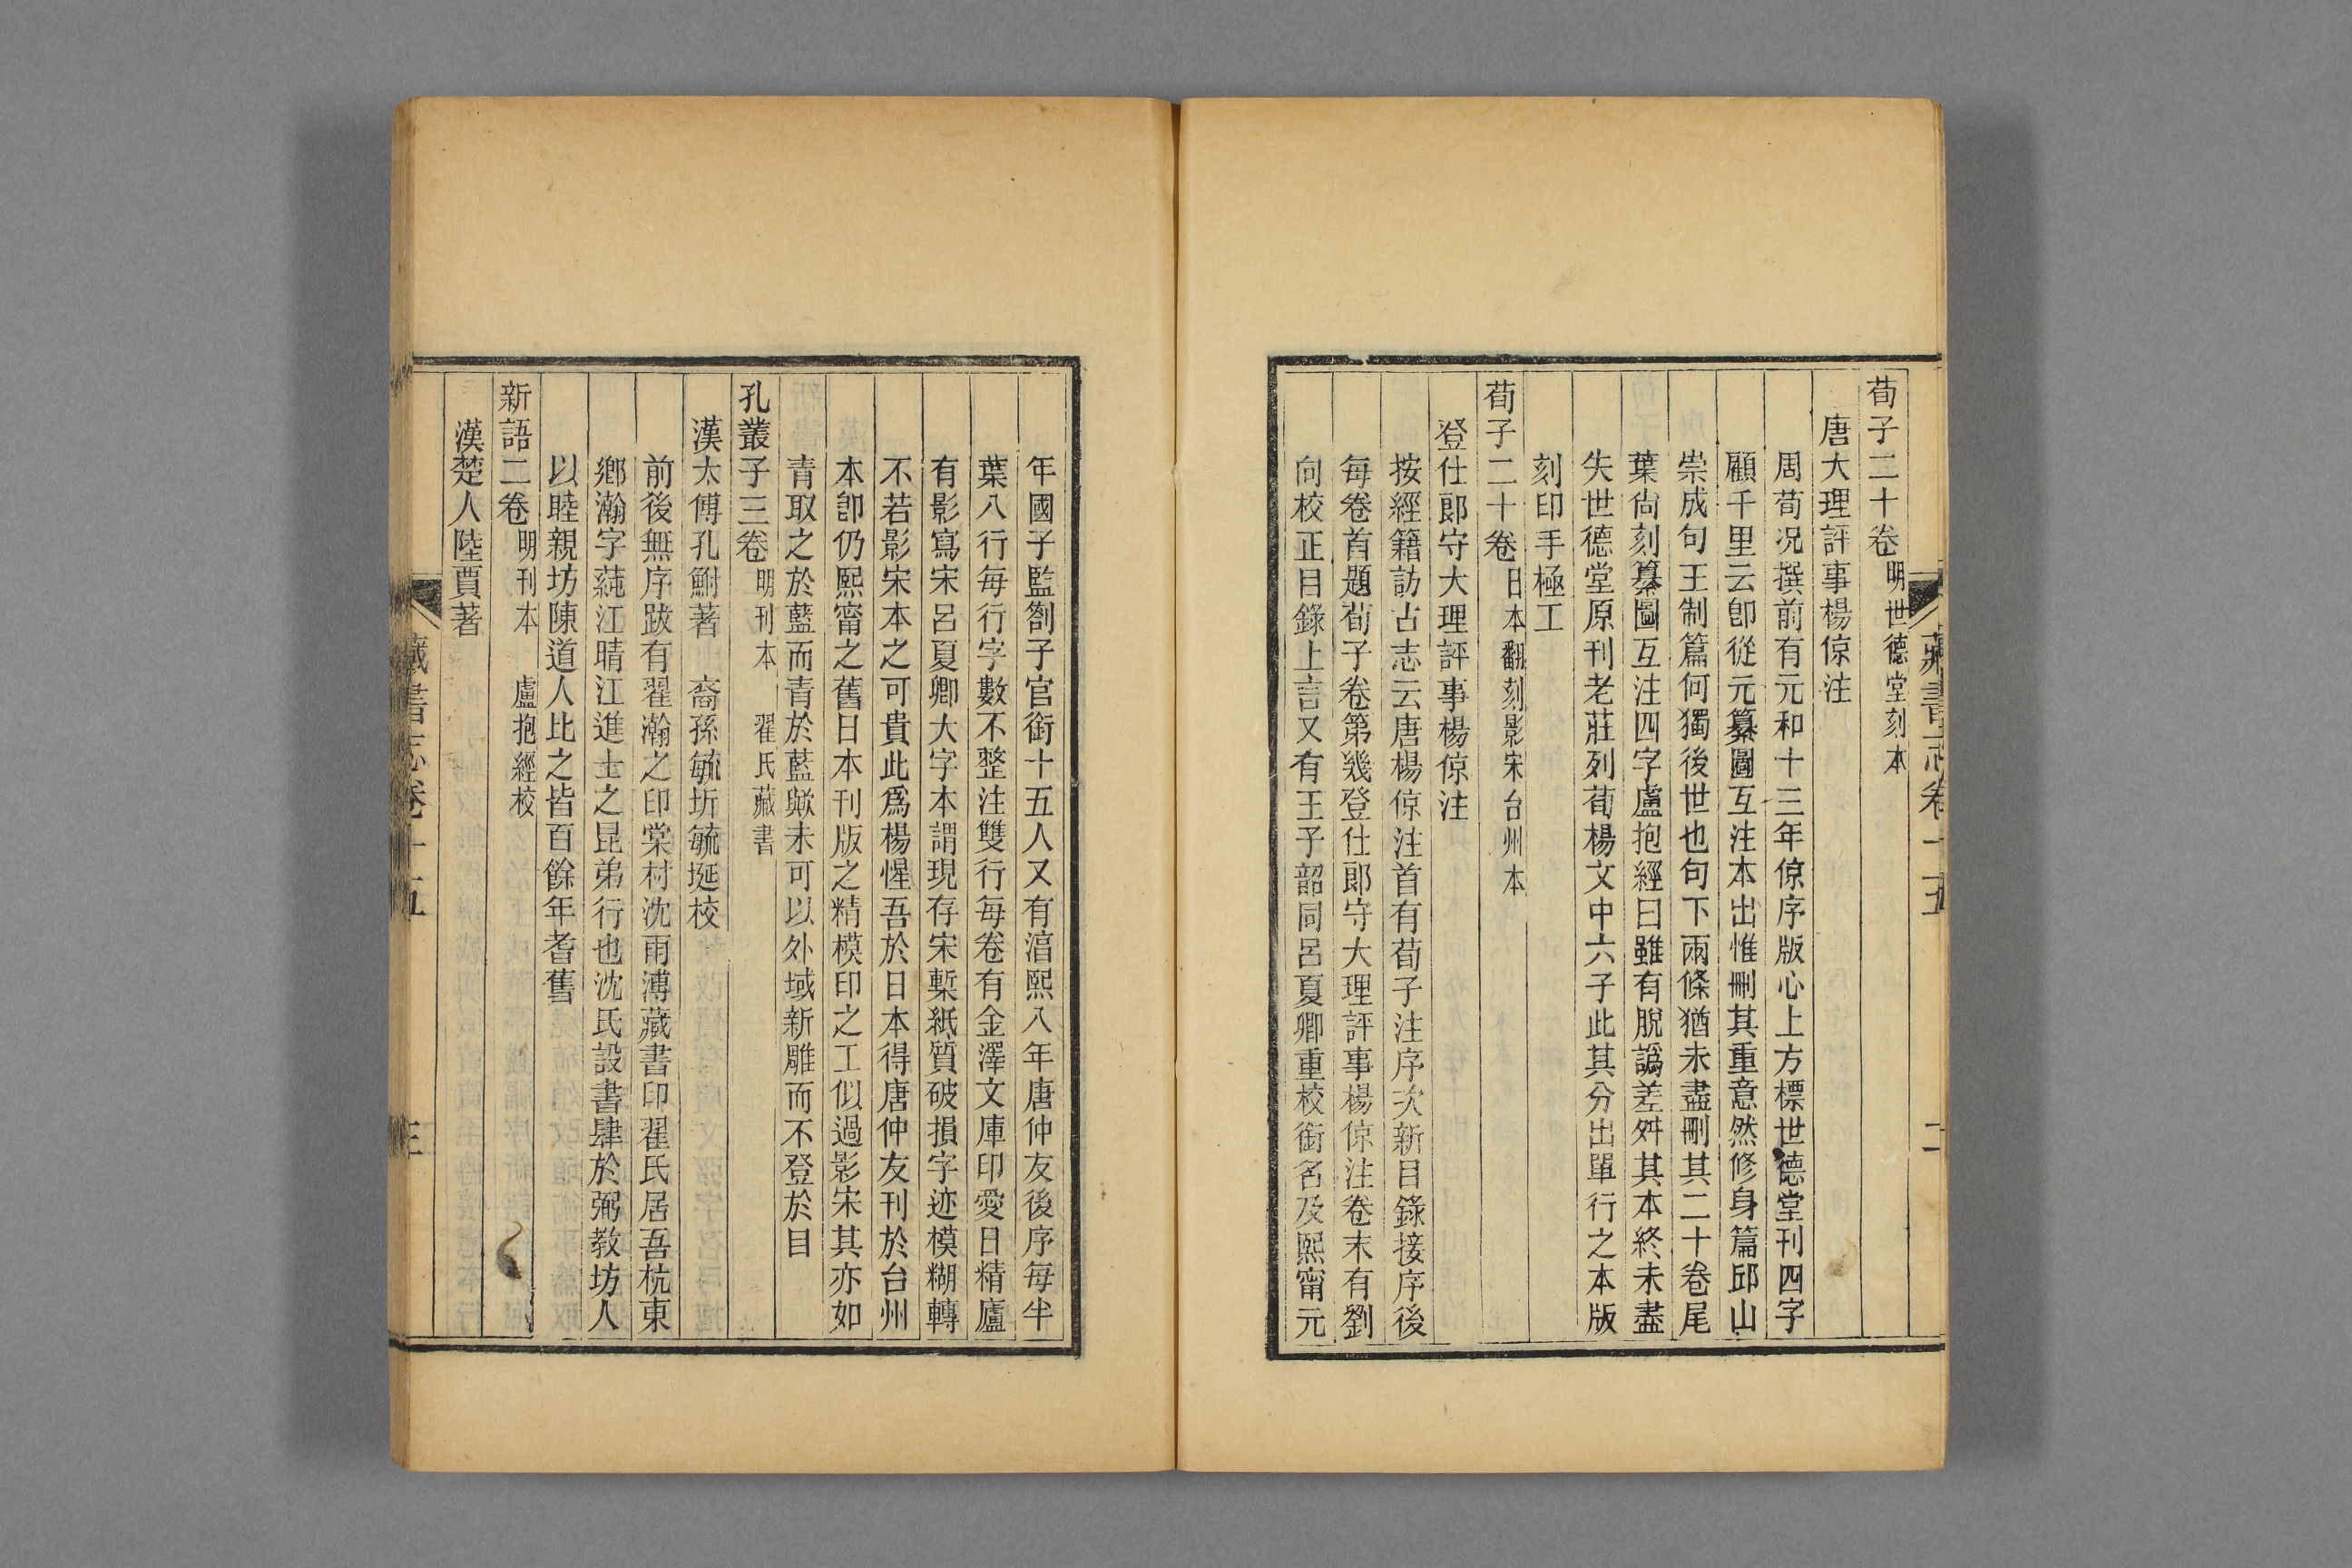 荀子二十卷 明世德堂刻本
唐大理評事楊倞注
周荀況撰前有元和十三年倞序版心上方標世德堂刊四字
顧千里云卽從元纂圖互注本出惟刪其重意然修身篇邱山
崇成句王制篇何獨後世也句下兩條猶未盡刪其二十卷尾
葉尙刻纂圖互注四字盧抱經曰雖有脫譌差舛其本終未盡
失世德堂原刊老莊列荀楊文中六子此其分出單行之本版
刻印手極工
荀子二十卷 日本翻刻影宋台州本
登仕郎守大理評事楊倞注
按經籍訪古志云唐楊倞注首有荀子注序次新目錄接序後
每卷首題荀子卷第幾登仕郎守大理評事楊倞注卷末有劉
向校正目錄上言又有王子韶同呂夏卿重校銜名及熙甯元
藏書志卷十五
二
年國子監劄子官銜十五人又有湻熙八年唐仲友後序每半
葉八行每行字數不整注雙行每卷有金澤文庫印愛日精廬
有影寫宋呂夏卿大字本謂現存宋槧紙質破損字迹模糊轉
不若影宋本之可貴此爲楊惺吾於日本得唐仲友刊於台州
本卽仍熙甯之舊日本刊版之精模印之工似過影宋其亦如
青取之於藍而青於藍歟未可以外域新雕而不登於目
孔叢子三卷 明刊本 翟氏藏書
漢太傅孔鮒著 裔孫毓圻毓埏校
前後無序跋有翟瀚之印棠村沈雨溥藏書印翟氏居吾杭東
鄉瀚字蒓江晴江進士之昆弟行也沈氏設書肆於弼教坊人
以睦親坊陳道人比之皆百餘年耆舊
新語二卷 明刊本 盧抱經校
漢楚人陸賈著
藏書志卷十五
三